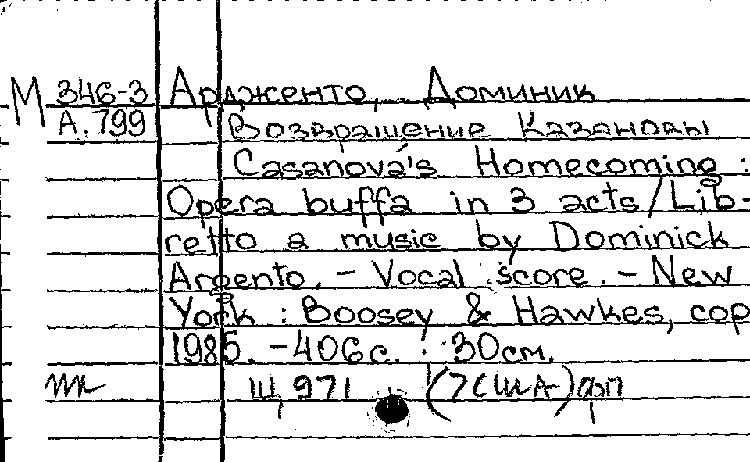 М 346-3 Ардженто, Доминик
А. 799 Возвращение Казановы
Casanova's Homecoming :
Opera buffa in 3 acts / Lib-
retto a music by Dominick
Argento. - Vocal score. - New
York : Boosey & Hawkes, cop
1985. - 406 с. : 30 см.
Щ 971 (7США) фп